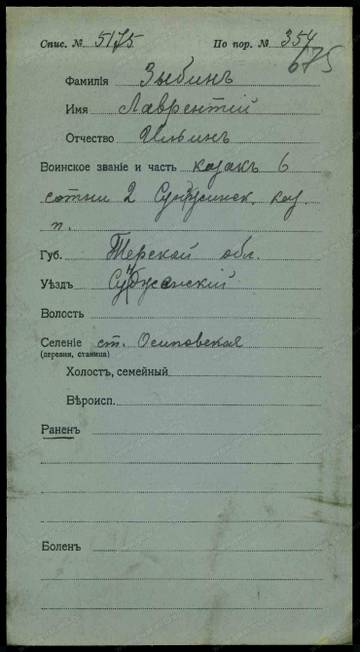 Спис. № 5175 По пор. № 354
675
Фамилія Зыбинъ
Имя Лаврентій
Отчество Ильинъ
Воинское званіе и часть казакъ 6
сотни 2 Сунженск. каз.
п.
Губ. Терской обл.
Уѣздъ
Волость
Селеніе ст. Осиповская
(деревня, станица)
Холост, семейный
Вѣроисп.
Раненъ
Боленъ